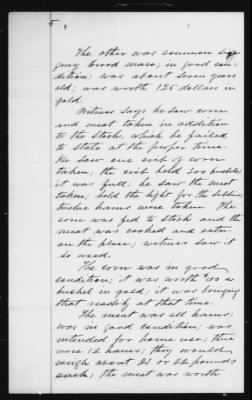 5
The other was common size
gray brood mare; in good con-
dition; was about seven years
old; was worth 125 dollars in
gold.
Witness says he saw corn
and meat taken in addition
to the stock, which he failed
to state at the proper time.
He saw one crib of corn
taken; the crib held 200 bushels
it was full; he saw the meat
taken; held the light for the soldiers;
twelve hams were taken. The
corn was fed to stock and the
meat was cooked and eaten
on the place; witness saw it
so used.
The corn was in good
condition; it was worth $1.00 a
bushel in gold; it was bringing
that readily at that time.
The meat was all hams;
was in good condition; was
intended for home use; there
were 12 hams; they would
weigh about 21 or 22 pounds
each; the meat was worth